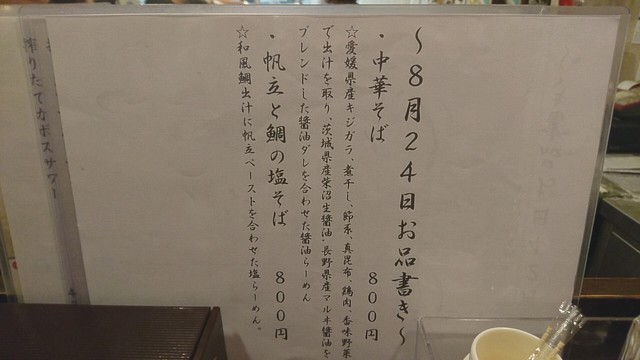 ～８月２４日お品書き～
・中華そば　８００円
☆愛媛県産キジガラ、煮干し、節系、真昆布、鶏肉、香味野菜
で出汁を取り、茨城県産柴沼生醤油・長野県産マルキ醤油を
ブレンドした醤油ダレを合わせた醤油らーめん
・帆立と鯛の塩そば　８００円
☆和風鯛出汁に帆立ペーストを合わせた塩らーめん。
搾りたてなボスサワー